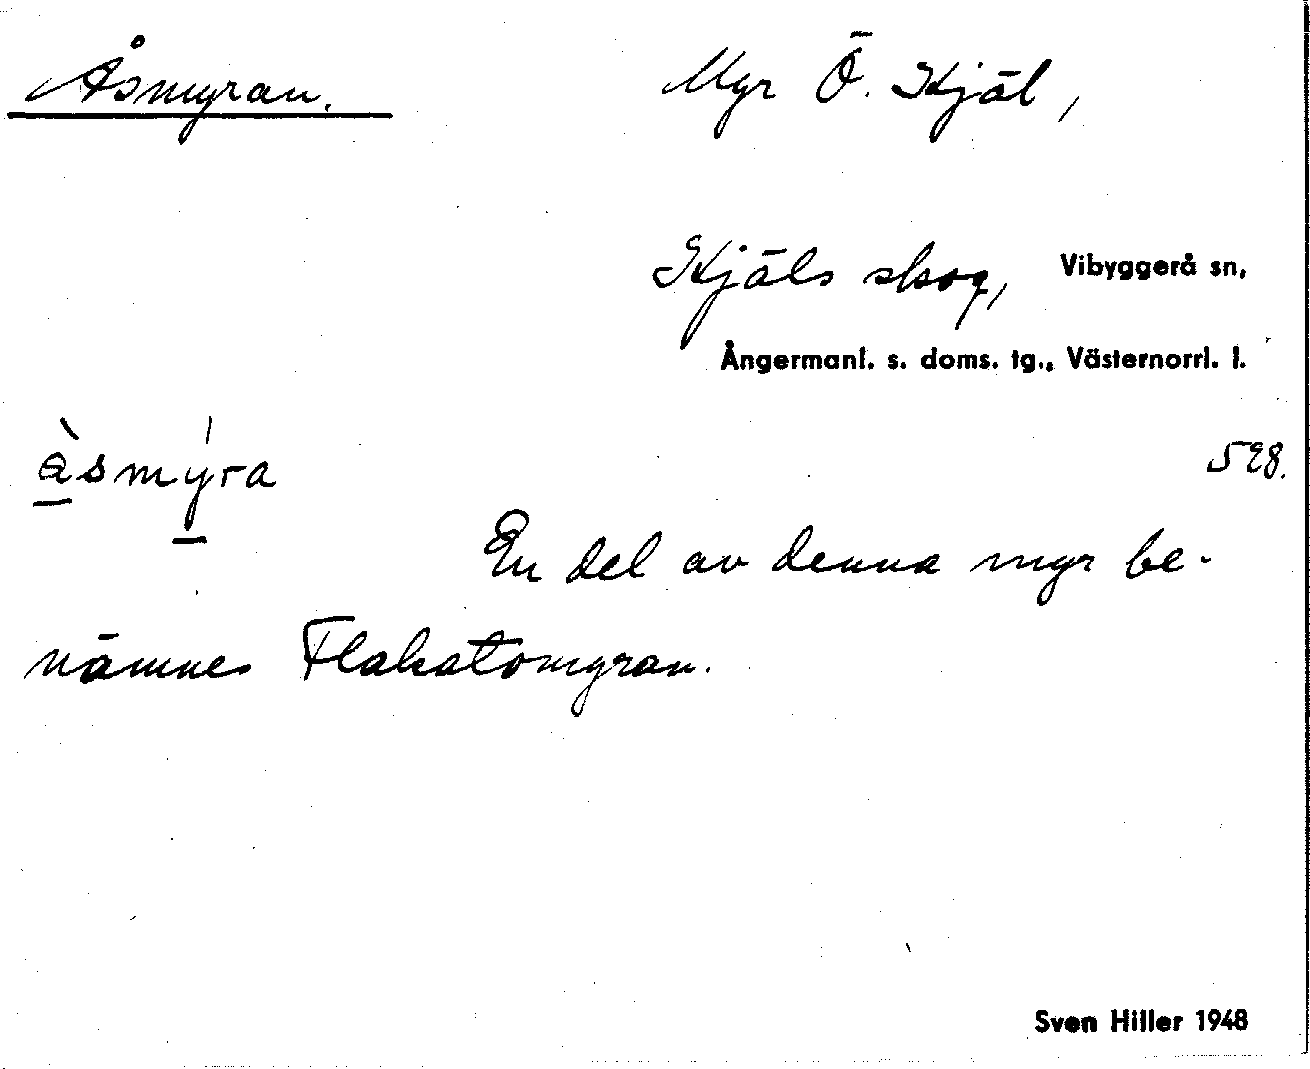 Åsmyran. Myr Ö. Skjäl,
Skjäls skog, Vibyggerå sn,
Ångermanl. s. doms. tg., Västernorrl. l.
àsmýra 598.
En del av denna myr be-
nämnes Flakatomyran.
Sven Hiller 1948